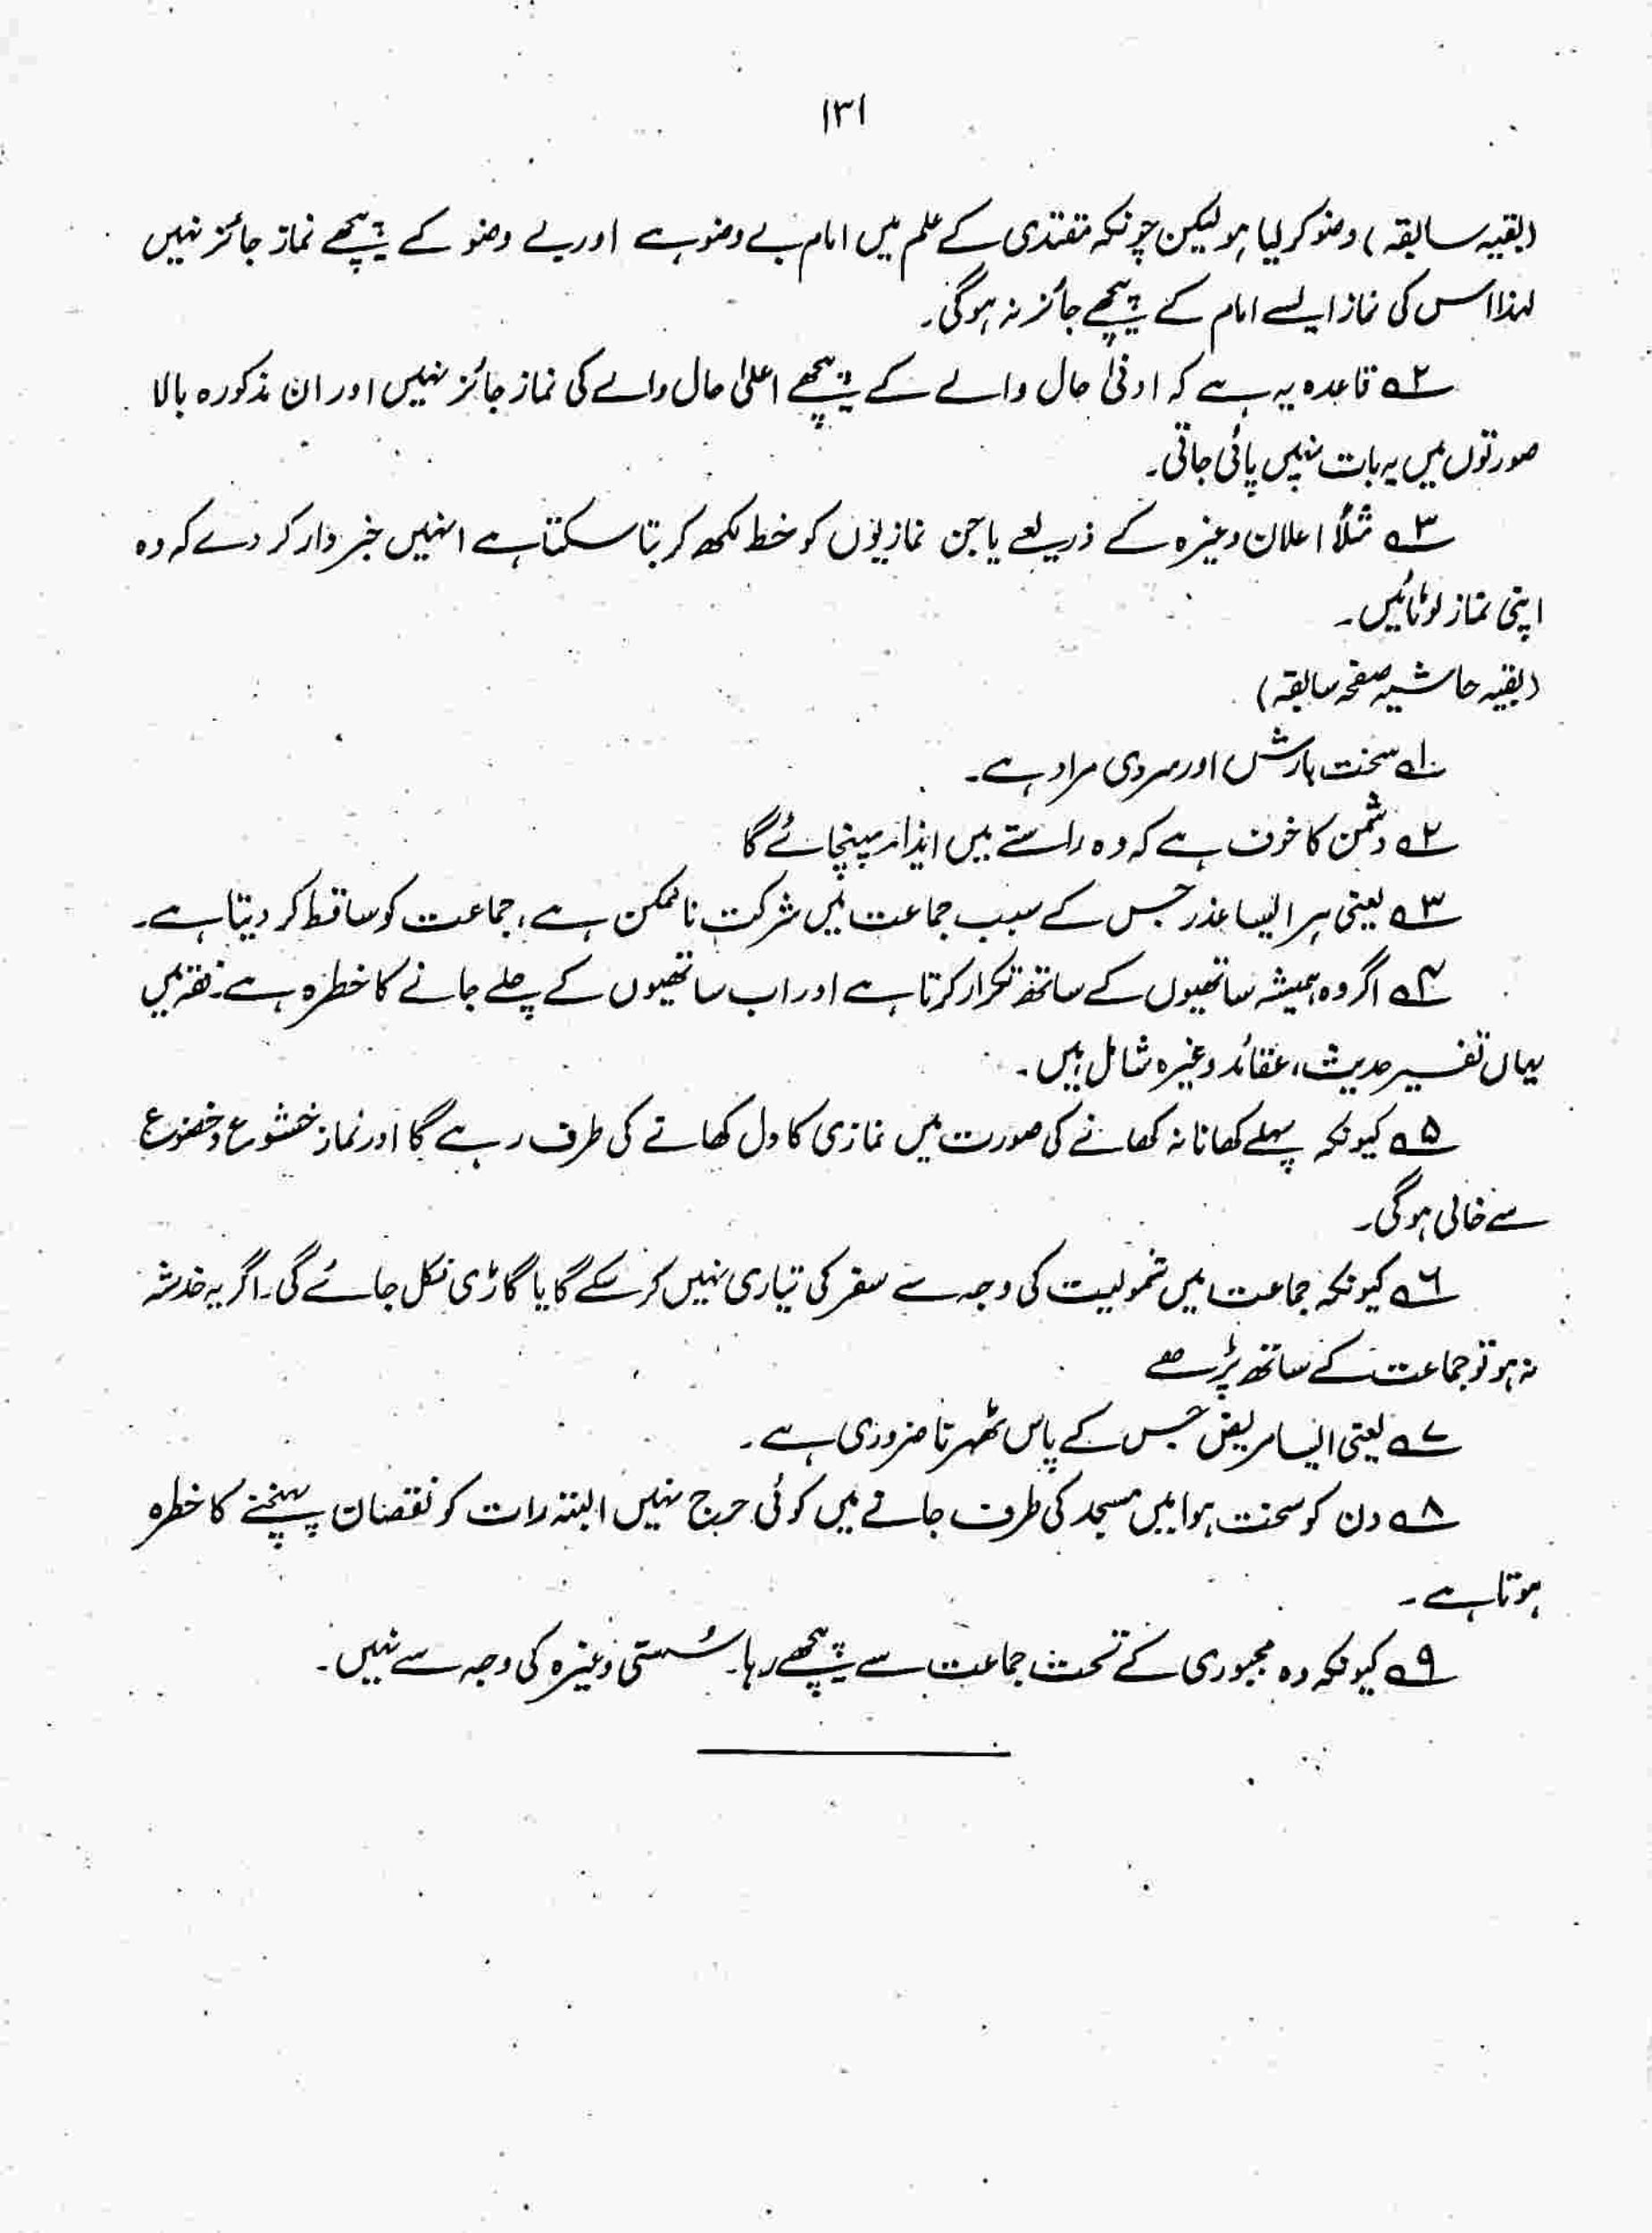 ۱۳۱
(بقیہ سابقہ) وضو کر لیا ہو لیکن چونکہ مقتدی کے علم میں امام بے وضو ہے اور بے وضو کے پیچھے نماز جائز نہیں
لہذا اس کی نماز ایسے امام کے پیچھے جائز نہ ہوگی۔
۲ے قاعدہ یہ ہے کہ ادنیٰ حال والے کے پیچھے اعلیٰ حال والے کی نماز جائز نہیں اور ان مذکورہ بالا
صورتوں میں یہ بات نہیں پائی جاتی۔
۳ے مثلاً اعلان وغیرہ کے ذریعے یا جن نمازیوں کو خط لکھ کر بتا سکتا ہے انہیں خبردار کر دے کہ وہ
اپنی نماز لوٹائیں۔
(بقیہ حاشیہ صفحہ سابقہ)
۱ے سخت بارش اور سردی مراد ہے۔
۲ے دشمن کا خوف ہے کہ وہ راستے میں ایذاء پہنچائے گا
۳ے یعنی ہر ایسا عذر جس کے سبب جماعت میں شرکت ناممکن ہے، جماعت کو ساقط کر دیتا ہے۔
۴ے اگر وہ ہمیشہ ساتھیوں کے ساتھ تکرار کرتا ہے اور اب ساتھیوں کے چلے جانے کا خطرہ ہے۔ فقہ میں
یہاں تفسیر حدیث، عقائد وغیرہ شامل ہیں۔
۵ے کیونکہ پہلے کھانا نہ کھانے کی صورت میں نمازی کا دل کھانے کی طرف رہے گا اور نماز خشوع وخضوع
سے خالی ہوگی۔
۶ے کیونکہ جماعت میں شمولیت کی وجہ سے سفر کی تیاری نہیں کر سکے گا یا گاڑی نکل جائے گی۔ اگر یہ خدشہ
نہ ہو تو جماعت کے ساتھ پڑھے
۷ے یعنی ایسا مریض جس کے پاس ٹھہرنا ضروری ہے۔
۸ے دن کو سخت ہوا میں مسجد کی طرف جانے میں کوئی حرج نہیں البتہ رات کو نقصان پہنچنے کا خطرہ
ہوتا ہے۔
۹ے کیونکہ وہ مجبوری کے تحت جماعت سے پیچھے رہا۔ سُستی وغیرہ کی وجہ سے نہیں۔